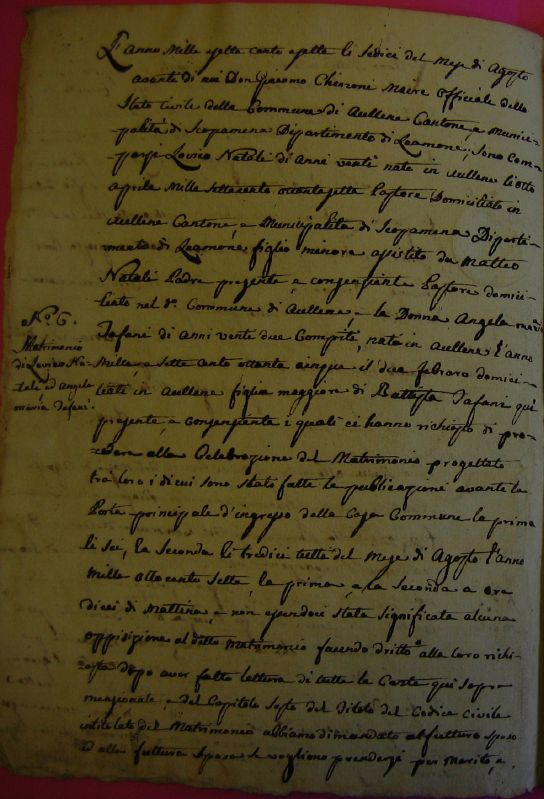 L'anno Mille sette cento sette li sedici del Mese di Agosto
avanti di noi Don Giacomo Chiezoni Maire officiale dello
Stato Civile della Commune di Aullene Cantone, e Munici-
palità di Scopamena Dipartimento di Leamone, sono Com-
parsi Lovico Natali di Anni venti nato in Aullene li otto
aprile Mille settecento ottantasette Pastore Domiciliato in
Aullene Cantone, e Municipalità di Scopamena Diparti-
mento di Leamone, figlio minore assistito da Matteo
Natali Padre presente, e consenziente Pastore domici-
liato nel do. Commune di Aullene, e la Donna Angela maria
Tafani di Anni vente due Compiti, nata in Aullene l'anno
Mille, e sette cento ottanta cinque il due febraro domici-
liati in Aullene figlia maggiore di Battista Tafani qui
presente, e consenziente i quali ci hanno richiesto di pro-
cedere alla Celebrazione del Matrimonio progettato
tra loro, i di cui sono state fatte le publicazioni avante la
Porta principale d'ingresso della Casa Commune la prima
li sei, la seconda li tredici tutte del Mese di Agosto l'anno
Mille otto cento sette, la prima, e la seconda a ore
dieci di Mattina, e non essendoci stata significata alcuna
opposizione al detto Matrimonio facendo dritto alla loro richi-
esta dopo aver fatto lettura di tutte le Carte qui sopra
menzionate, e del Capitolo Sesto del Titolo del Codice civile
intitolato del Matrimonio abbiamo dimandato al futturo sposo
ed alla futtura sposa se vogliono prendersi per Marito, e
No. 6.
Matrimonio
di Lovico Na-
tali ed Angela
maria Tafani.